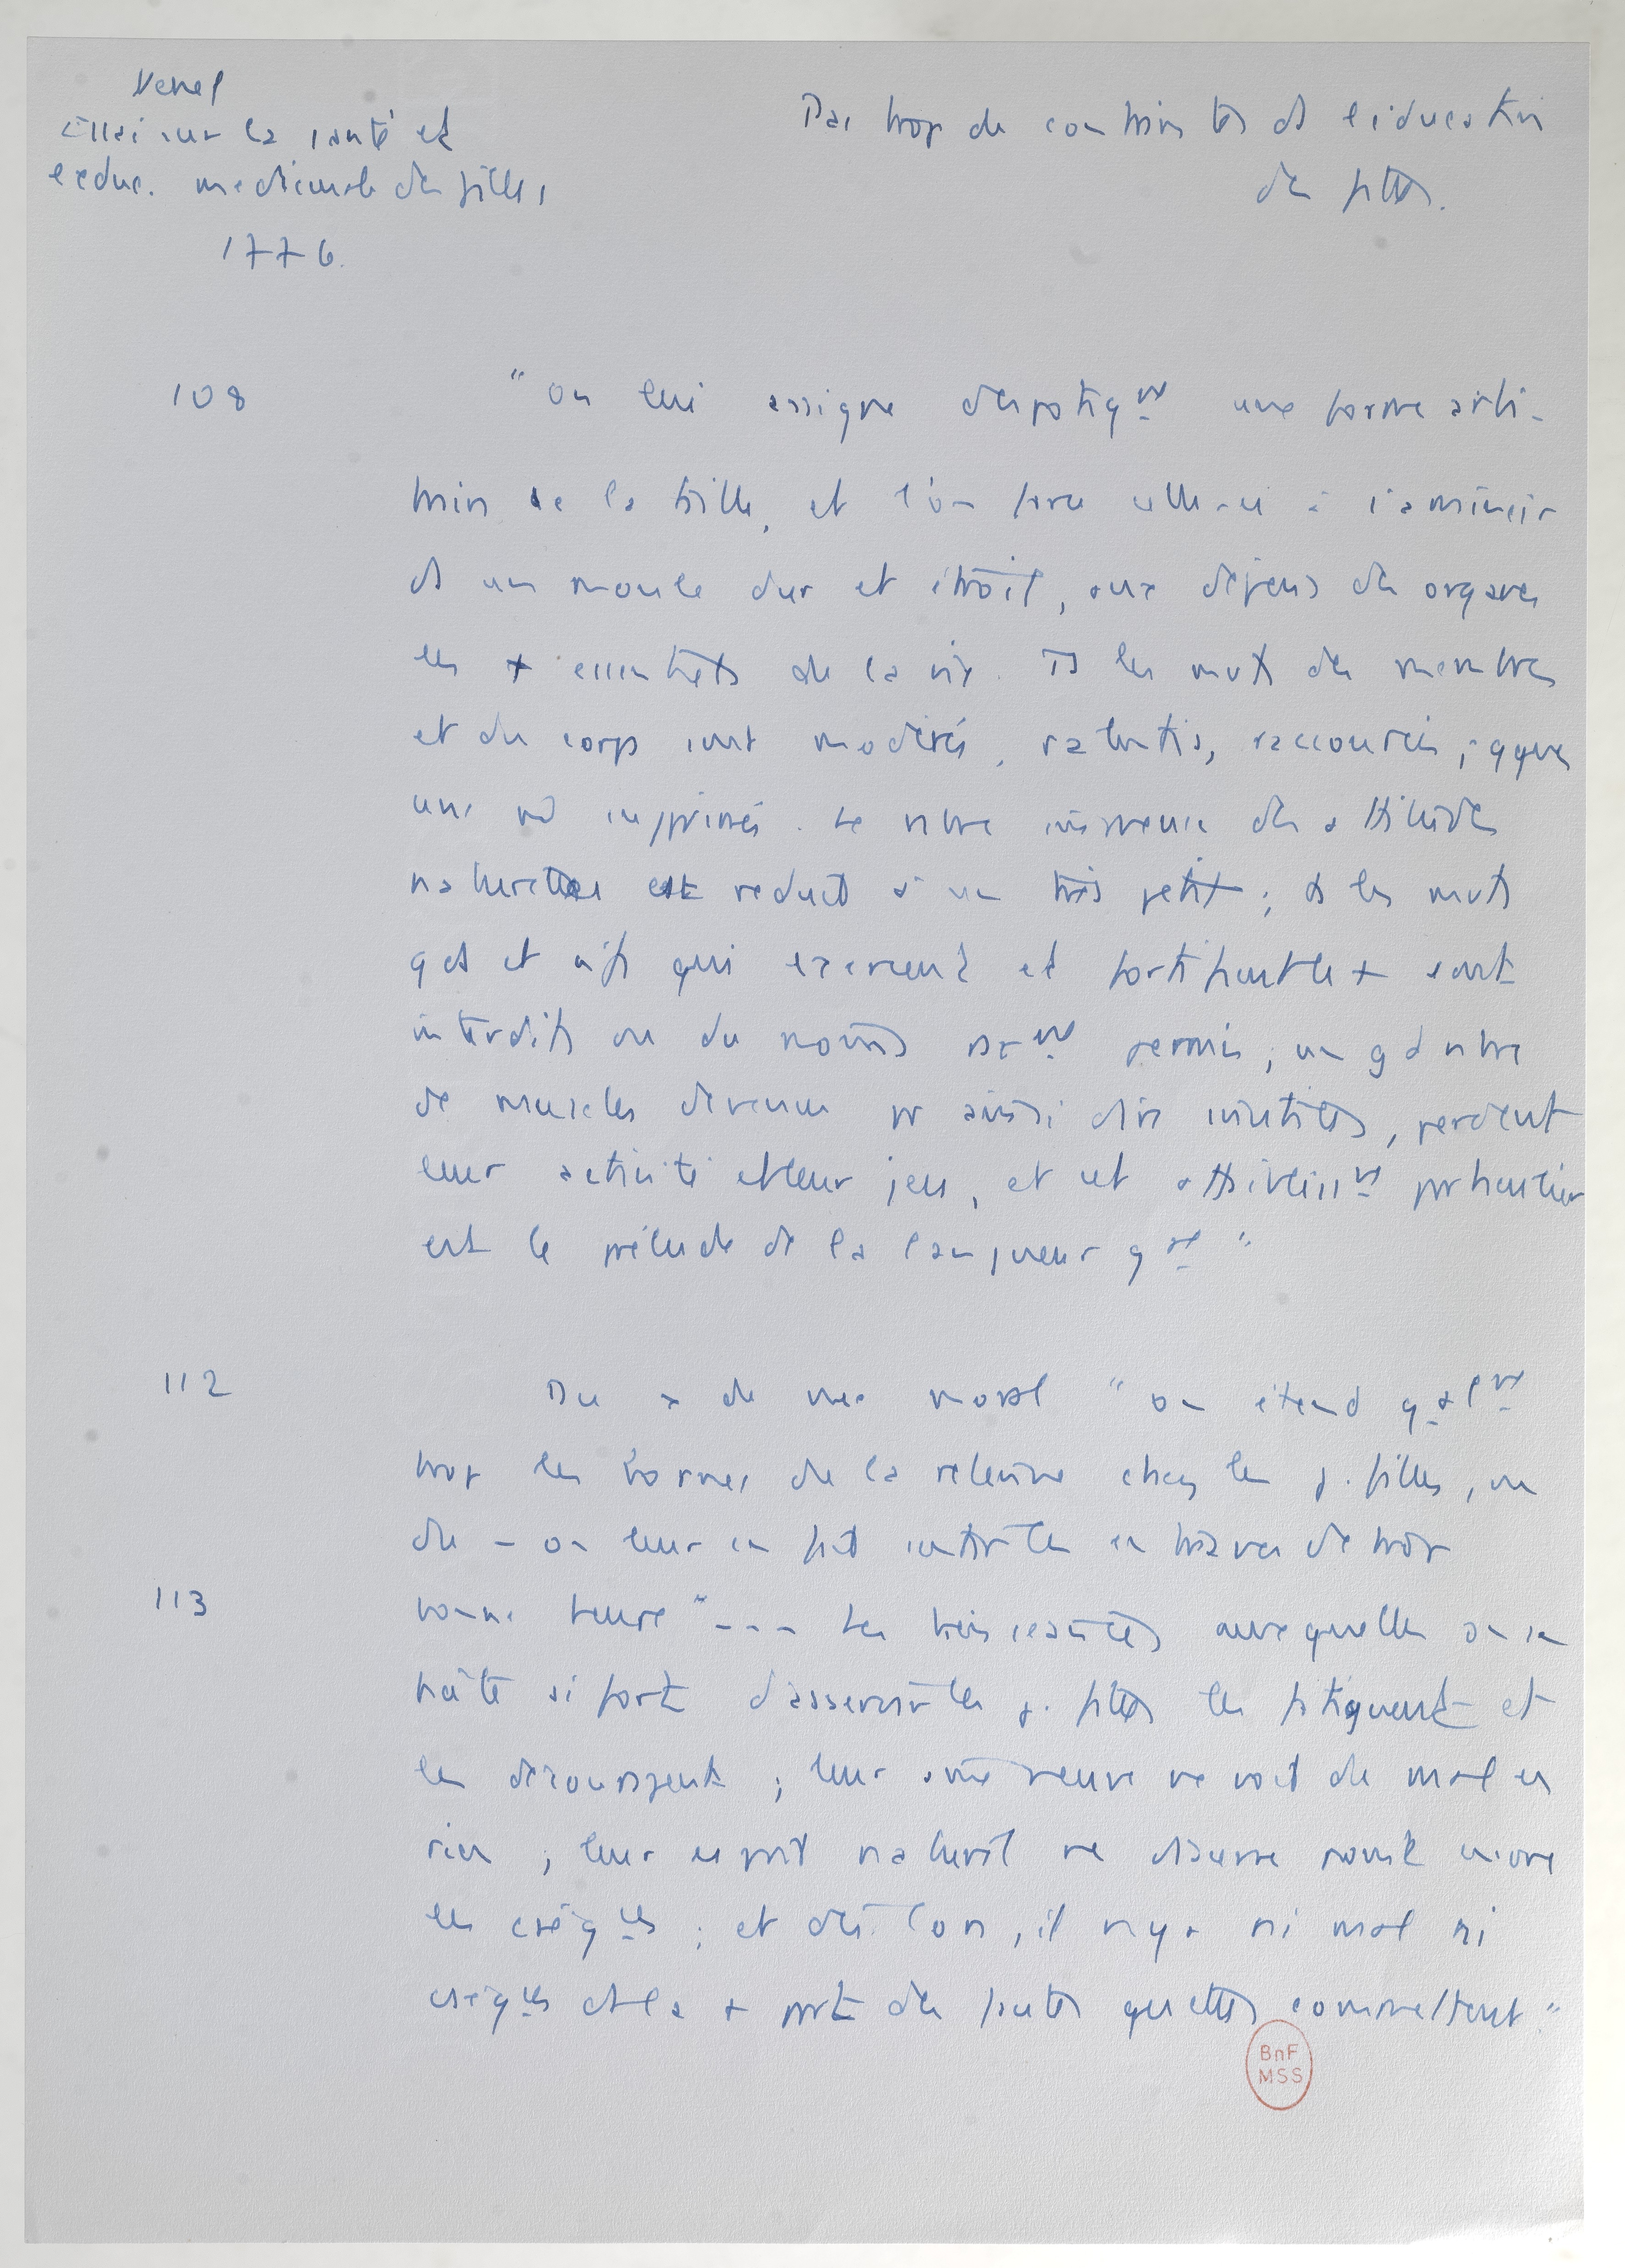 Venel
Essai sur la santé et
l'educ. medicinale des filles
1776.
Pas trop de contraintes ds l'éducation
des filles.
108
"On lui assigne despotiqt une forme
de la taille, et l'on force celle-ci à s'amincir
ds un moule dur et étroit, aux dépens des organes
les + essentiels de la vie. Ts les mvts des membres
et du corps sont modérés, ralentis, raccourcis, qques
uns supprimés. Le nbre immense des attitudes
naturelles est reduit à un très petit ; ts les mvts
gds et vifs qui exercent et fortifient le + sont
interdits ou du moins rart permis ; un gd nbre
de muscles devenus pr ainsi dire inutiles, perdent
leur activité et leur jeu, et cet affaiblisst particulier
est le prélude de la langueur gale"
112
Du pt de vue moral "on étend généralt
trop les bornes de la retenue chez les j. filles, ou
du - on leur en fait sentir les entraves de trop
113
bonne heure" --- Les bienséances auxquelles on se
hâte si fort d'asservir les j. filles les fatiguent et
les découragent ; leur âme neuve ne voit de mal en
rien ; leur esprit naturel ne discerne point encore
les conséqces ; et dès lors, il n'y a ni mal ni
conséqces ds la + part des fautes qu'elles commettent"
BnF
MSS